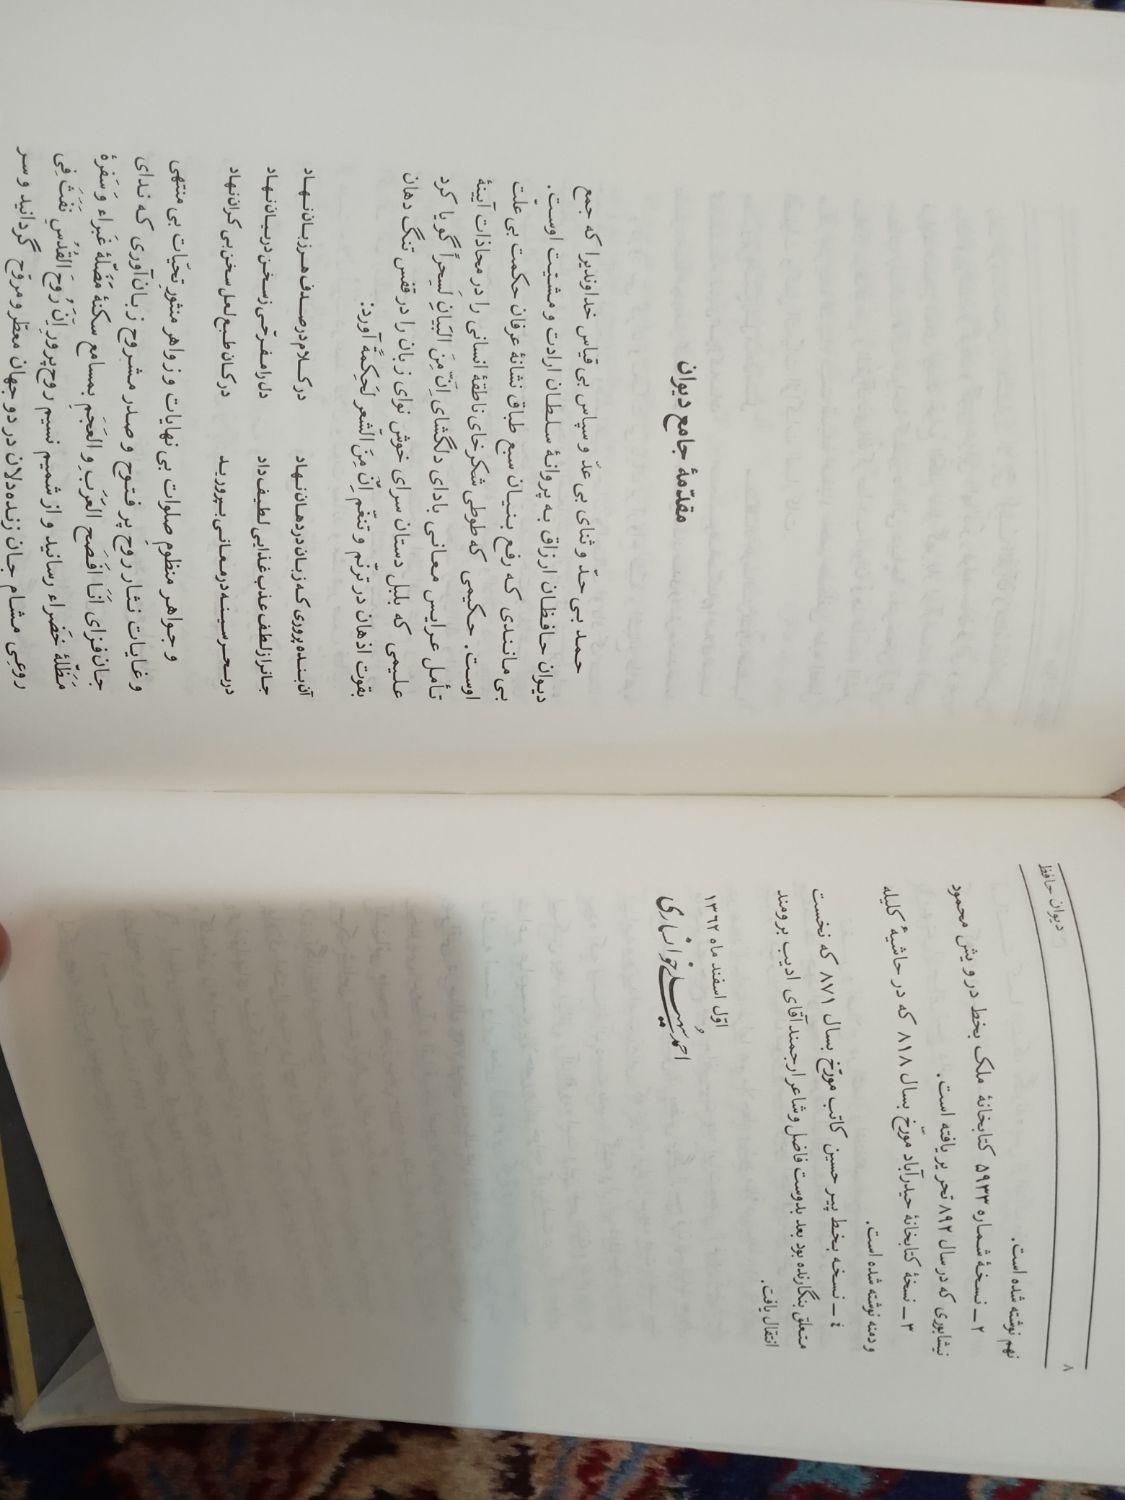 ۸
دیوان حافظ
نهم نوشته شده است.
۲ ــ نسخهٔ شماره ۵۹۳۳ کتابخانهٔ ملک بخط درویش محمود
نیشابوری که در سال ۸۹۲ تحریر یافته است.
۳ ــ نسخهٔ کتابخانهٔ حیدرآباد مورّخ بسال ۸۱۸ که در حاشیهٔ کلیله
و دمنه نوشته شده است.
٤ ــ نسخه بخط پیر حسین کاتب مورّخ بسال ۸۷۱ که نخست
متعلق بنگارنده بود بعد بدوست فاضل و شاعر ارجمند آقای ادیب برومند
انتقال یافت.
اوّل اسفند ماه ۱۳۶۲
احمد سهیلی خوانساری
مقدّمهٔ جامع دیوان
حمد بی حدّ و ثنای بی عدّ و سپاس بی قیاس خداوندیرا که جمع
دیوان حافظان ارزاق به پروانهٔ سلطان ارادت و مشیّت اوست.
بی مانندی که رفع بنیان سبع طباق نشانهٔ عرفان حکمت بی علت
اوست. حکیمی که طوطی شکرخای ناطقهٔ انسانی را در محاذات آیینهٔ
تأمل عرایس معانی بادای دلگشای اِنَّ مِنَ البَیَانِ لَسِحراً گویا کرد
علیمی که بلبل دستان سرای خوش نوای زبان را در قفس تنگ دهان
بقوت اذهان در ترنّم و تنغّم اِنَّ مِنَ الشّعر لَحِکمَةً آورد:
آن بنده پروری که زبان در دهان نهاد در کلام در صدف هر زبان نهاد
جانرا ز لطف عذب غذایی لطیف داد دل را مفرّحی ز سخن در بیان نهاد
در بحر سینه در معانی بپرورید در کان طبع لعل سخن بی کران نهاد
و جواهر منظوم صلوات بی نهایات و زواهر منثور تحیّات بی منتهی
و غایات نثار روح پر فتوح و صدر مشروح زبان آوری که ندای
جان فزای اَنَا اَفصَح العَرَبِ و العَجَمِ بمسامع سکنهٔ مَصَلّهٔ غَبراء و سَفرهٔ
مَظَلّهٔ خَضراء رسانید و از شمیم نسیم روح پرور اِنَّ رُوحَ القُدُسِ نَفَثَ فِی
روعِی مشام جان زنده دلان در دو جهان معطّر و مروّح گردانید و سر